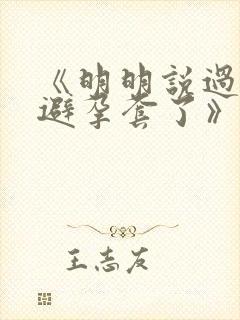 《明明說過
避孕套了》
王志友